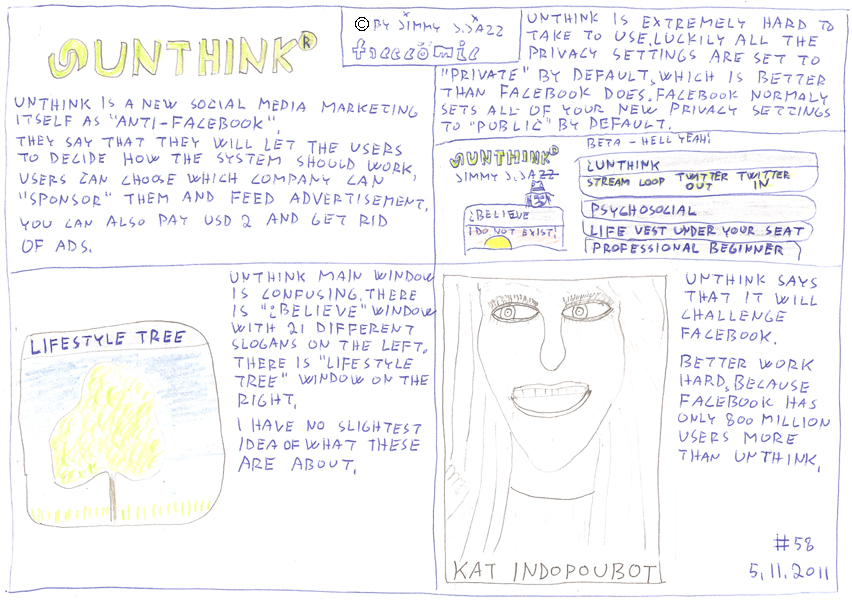 UNTHINK®
UNTHINK IS A NEW SOCIAL MEDIA MARKETING
ITSELF AS "ANTI-FACEBOOK".
THEY SAY THAT THEY WILL LET THE USERS
TO DECIDE HOW THE SYSTEM SHOULD WORK.
USERS CAN CHOOSE WHICH COMPANY CAN
"SPONSOR" THEM AND FEED ADVERTISEMENT.
YOU CAN ALSO PAY USD 2 AND GET RID
OF ADS.
© BY JIMMY J.JAZZ
freecomic
UNTHINK IS EXTREMELY HARD TO
TAKE TO USE. LUCKILY ALL THE
PRIVACY SETTINGS ARE SET TO
"PRIVATE" BY DEFAULT, WHICH IS BETTER
THAN FACEBOOK DOES. FACEBOOK NORMALY
SETS ALL OF YOUR NEW PRIVACY SETTINGS
TO "PUBLIC" BY DEFAULT.
BETA - HELL YEAH!
UNTHINK®
JIMMY J.JAZZ
¿BELIEVE
I DO NOT EXIST!
¿UNTHINK
STREAM LOOP TWITTER TWITTER
OUT IN
PSYCHOSOCIAL
LIFE VEST UNDER YOUR SEAT
PROFESSIONAL BEGINNER
LIFESTYLE TREE
UNTHINK MAIN WINDOW
IS CONFUSING. THERE
IS "¿BELIEVE" WINDOW
WITH 21 DIFFERENT
SLOGANS ON THE LEFT.
THERE IS "LIFESTYLE
TREE" WINDOW ON THE
RIGHT.
I HAVE NO SLIGHTEST
IDEA OF WHAT THESE
ARE ABOUT.
KAT INDOPOUBOT
UNTHINK SAYS
THAT IT WILL
CHALLENGE
FACEBOOK.
BETTER WORK
HARD, BECAUSE
FACEBOOK HAS
ONLY 800 MILLION
USERS MORE
THAN UNTHINK.
#58
5.11.2011